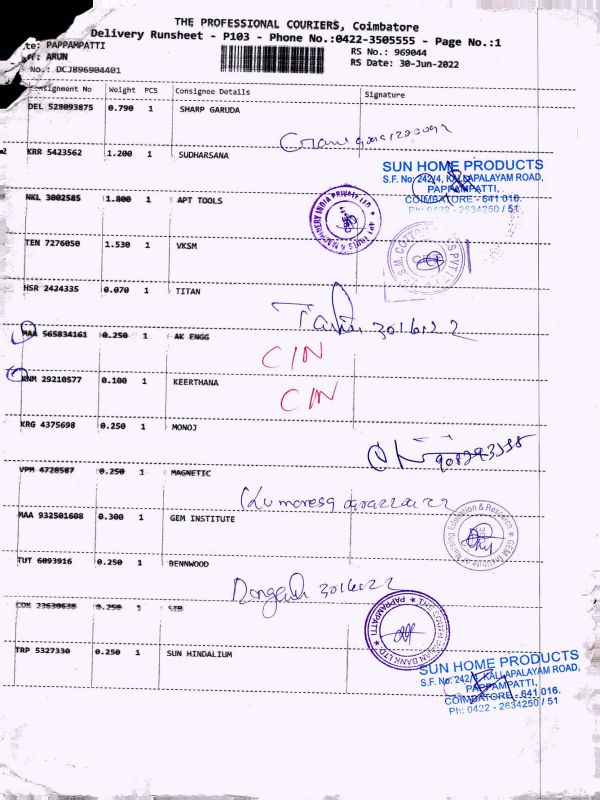 THE PROFESSIONAL COURIERS, Coimbatore
Delivery Runsheet - P103 - Phone No.:0422-3505555 - Page No.:1
PAPPAMPATTI
RS No.: 969044
ARUN
RS Date: 30-Jun-2022
No.: DCJ896904401
Consignment No Weight PCS Consignee Details Signature
DEL 528093875 0.790 1 SHARP GARUDA
KRR 5423562 1.200 1 SUDHARSANA
SUN HOME PRODUCTS
S.F. No: 242/4, KALLAPALAYAM ROAD,
PAPPAMPATTI,
COIMBATORE - 641 016.
Ph: 0422 - 2634250 / 51
NKL 3002585 1.800 1 APT TOOLS
TEN 7276050 1.530 1 VKSM
HSR 2424335 0.070 1 TITAN
30/6/22
MAA 565834161 0.250 1 AK ENGG
C/N
KNM 29210577 0.100 1 KEERTHANA
C/N
KRG 4375698 0.250 1 MONOJ
VPM 4728587 0.250 1 MAGNETIC
MAA 932501608 0.300 1 GEM INSTITUTE
GEM Institute of Nursing Education & Research
TUT 6093916 0.250 1 BENNWOOD
30/6/22
0.250 1 SIB
THE SOUTH INDIAN BANK LTD. PAPPAMPATTI
TRP 5327330 0.250 1 SUN HINDALIUM
SUN HOME PRODUCTS
S.F. No: 242/4, KALLAPALAYAM ROAD,
PAPPAMPATTI,
COIMBATORE - 641 016.
Ph: 0422 - 2634250 / 51